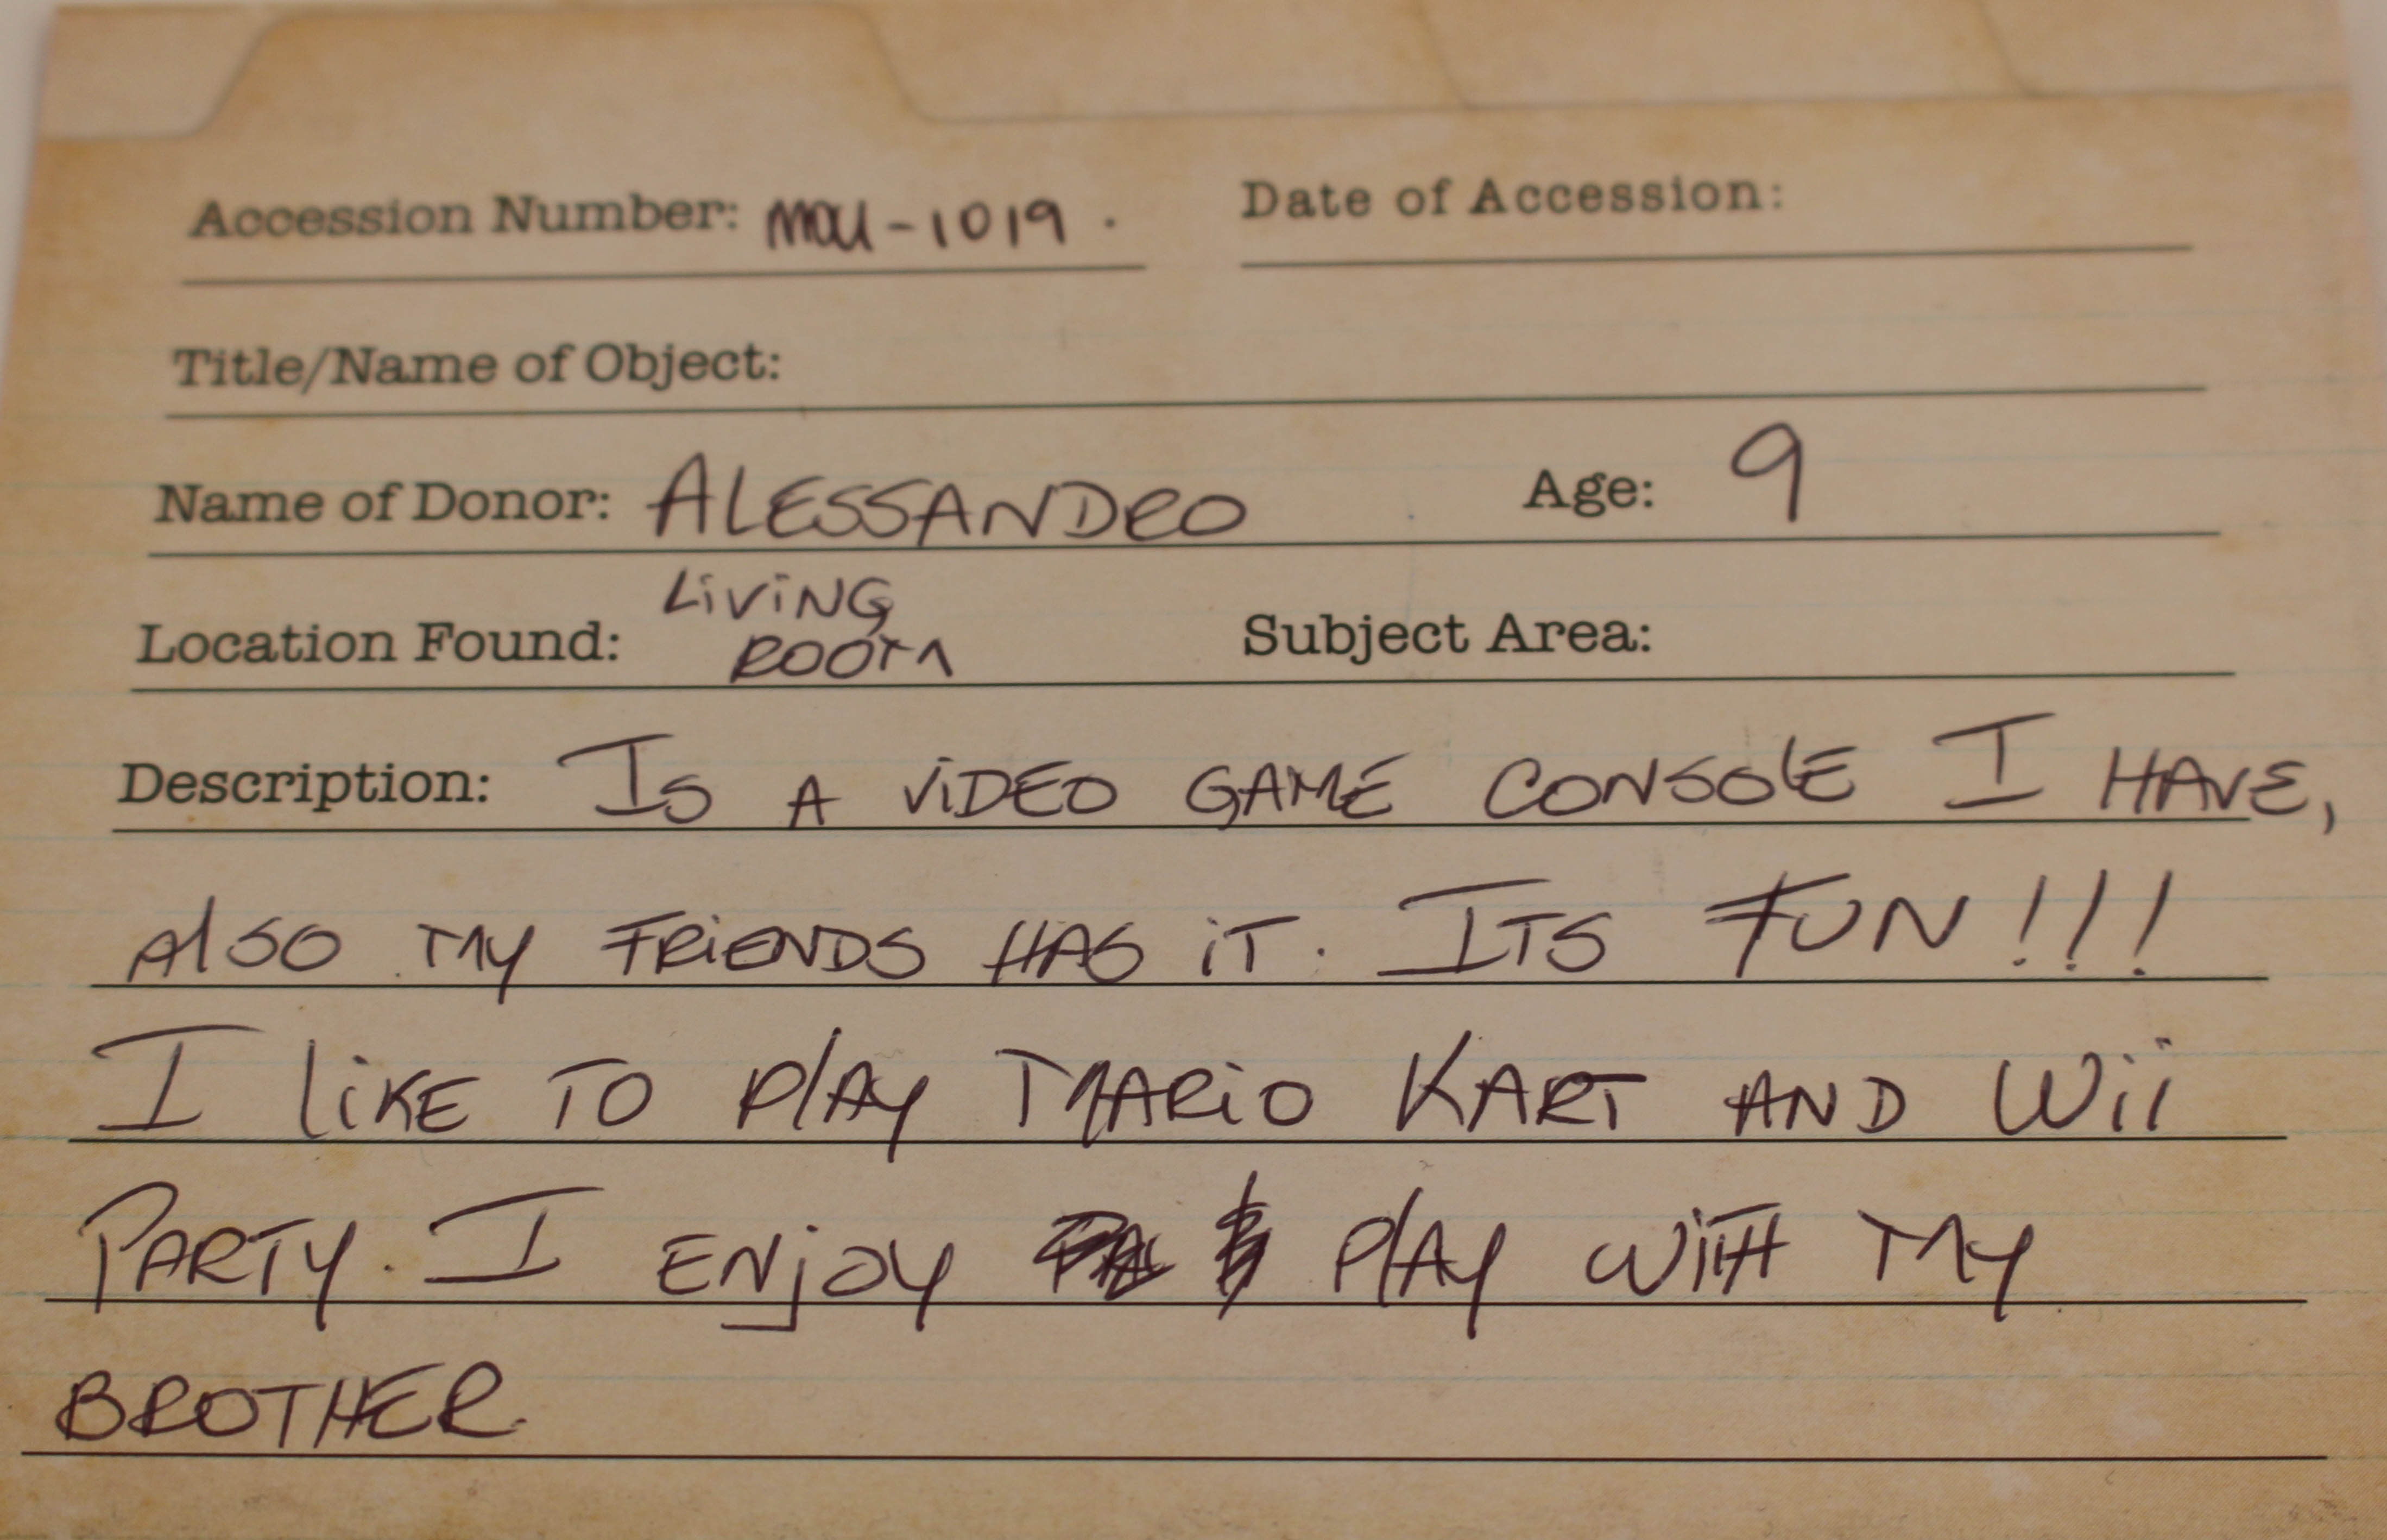 Accession Number: MOU-1019. Date of Accession:
Title/Name of Object:
Name of Donor: ALESSANDRO Age: 9
Location Found: LiViNG ROOM Subject Area:
Description: IS A ViDEO GAME CONSOLE I HAVE,
AlSO MY FRiENDS HAS iT. ITS FUN!!!
I liKE TO PlAY MARiO KART AND Wii
PARTY. I ENjOY PlAY WiTH MY
BROTHER